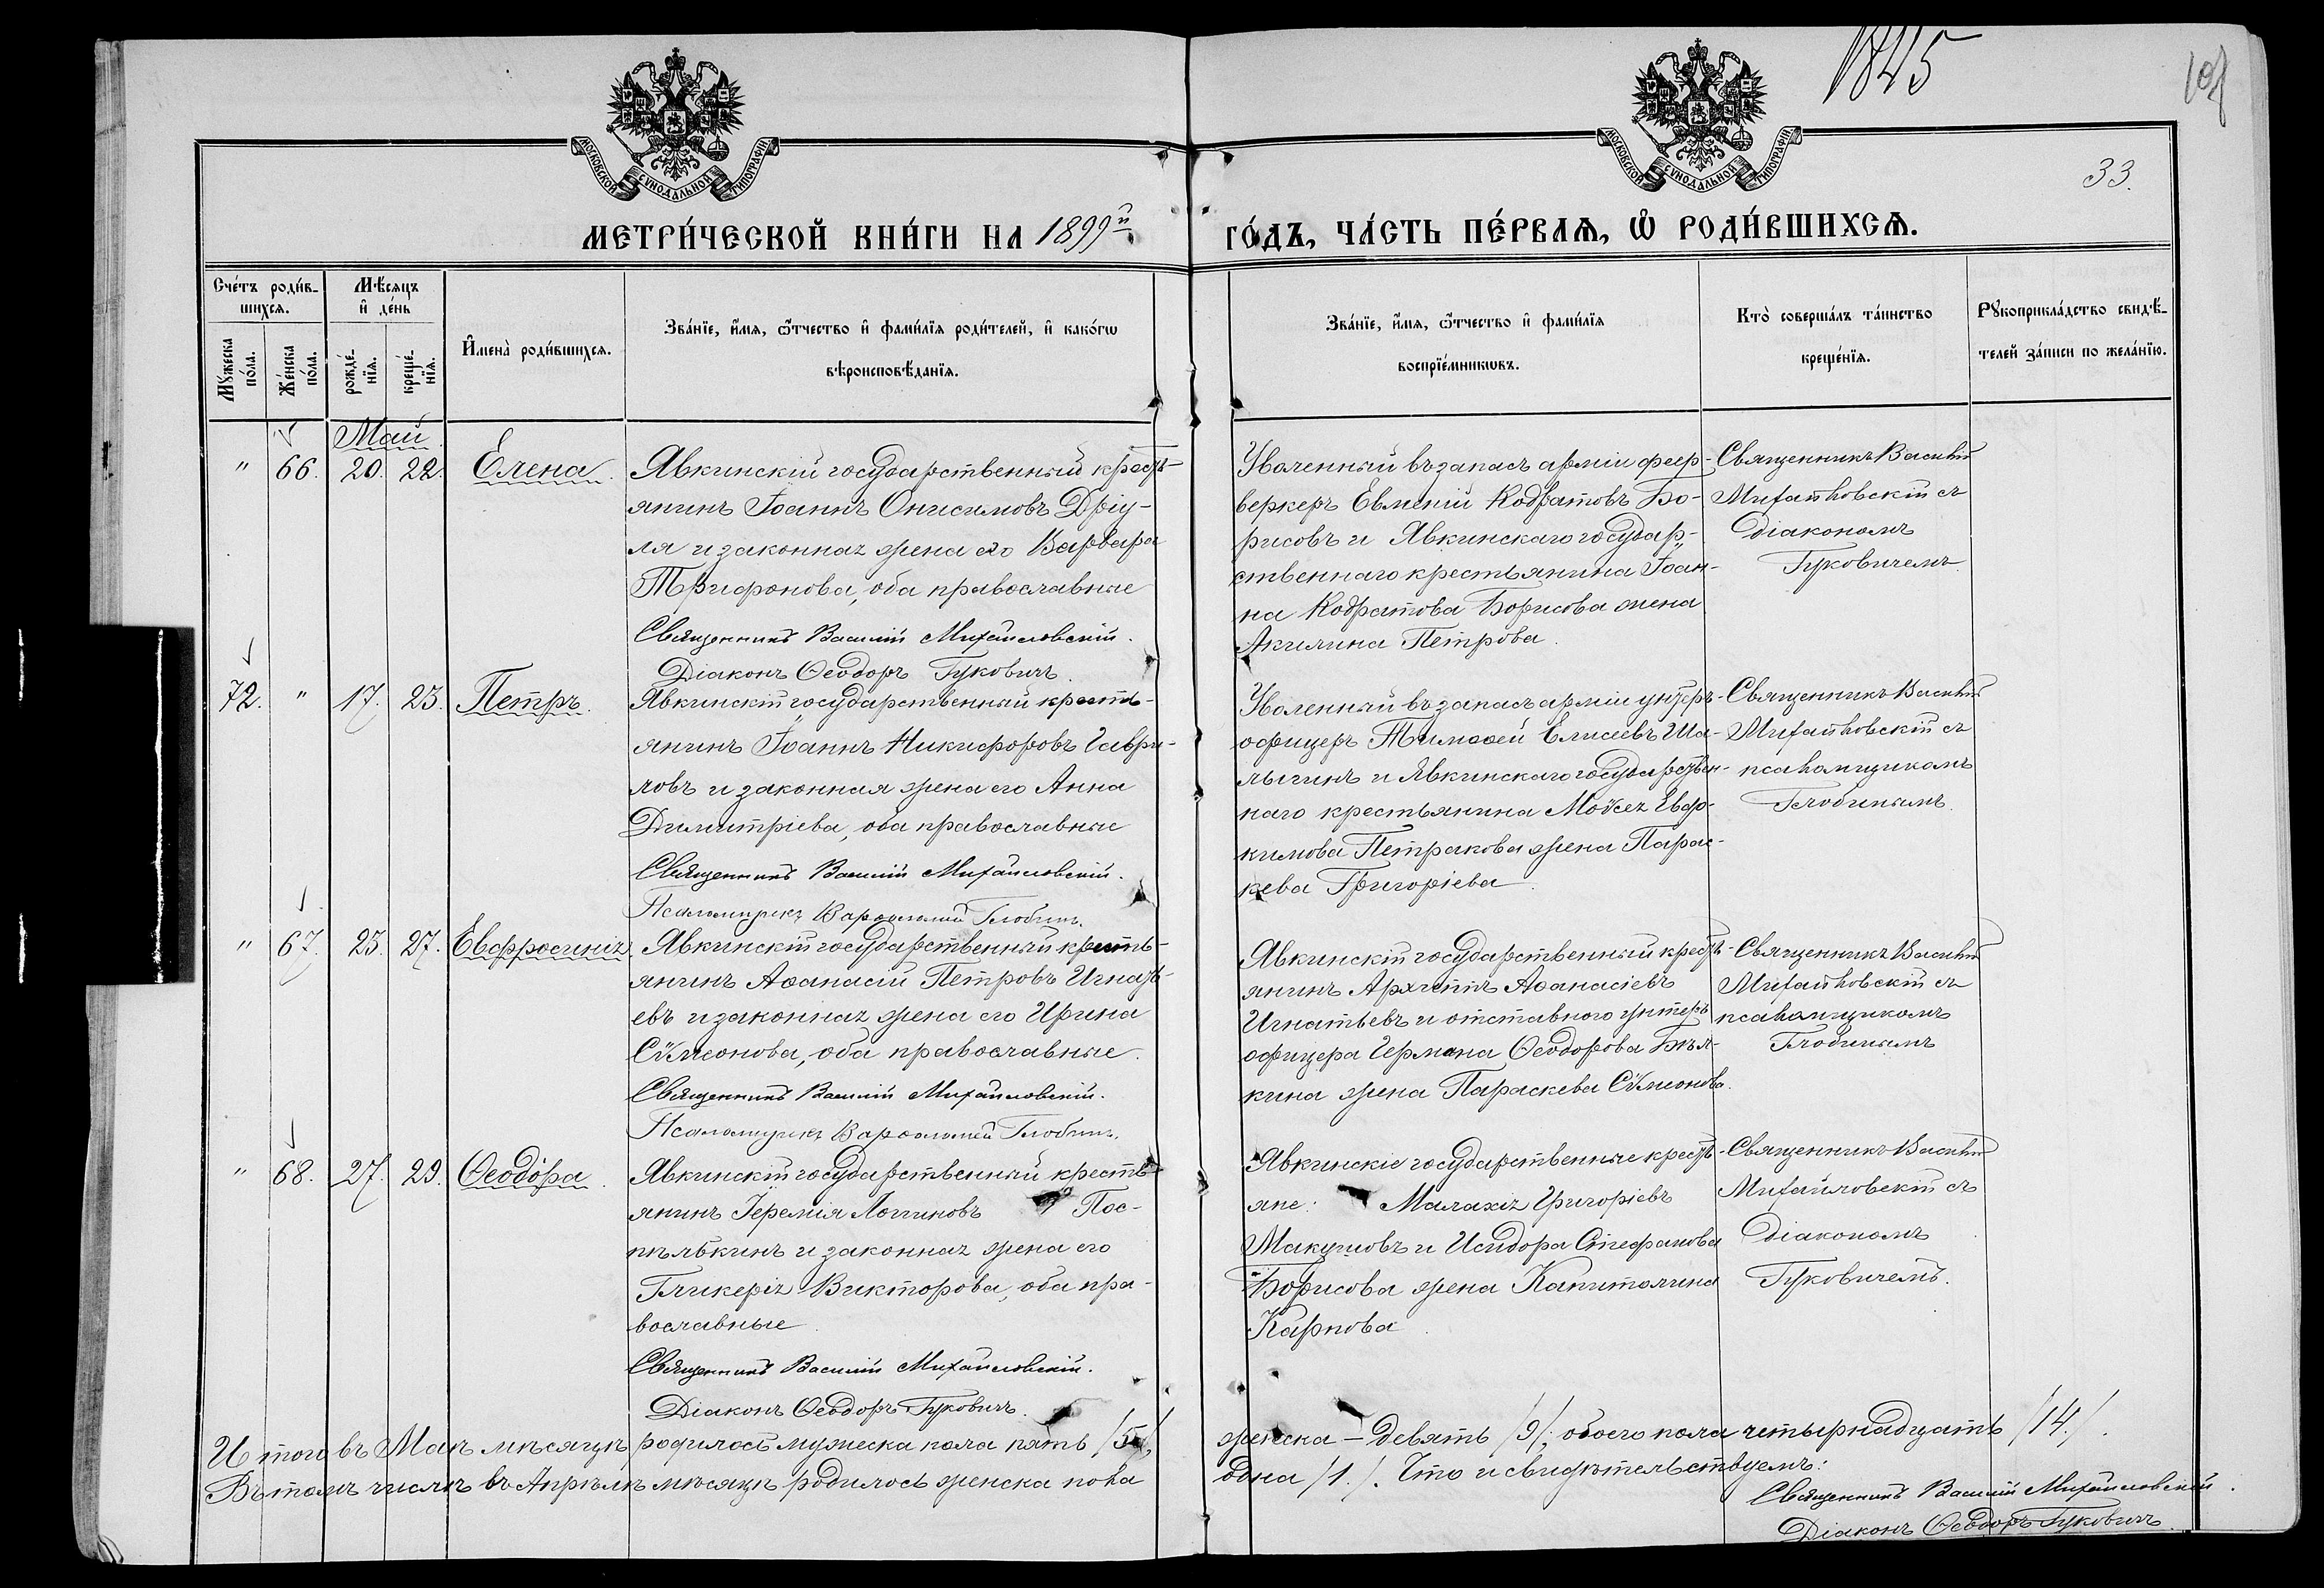 1845
101
33.
МОСКОВСКОЙ СѴНОДАЛЬНОЙ ТИПОГРАФІИ
МОСКОВСКОЙ СѴНОДАЛЬНОЙ ТИПОГРАФІИ
МЕТРИ́ЧЕСКОЙ КНИ́ГИ НА 1899й
ГО́ДЪ, ЧА́СТЬ ПЕ́РВАѦ, Ѡ҆ РОДИ́ВШИХСѦ.
Сче́тъ роди́в-
шихсѧ.
Мꙋ́жеска по́ла.
Же́нска по́ла.
Мѣ́сѧцъ
и҆ де́нь
рожде́-нїѧ.
креще́-нїѧ.
И҆мена̀ роди́вшихсѧ.
Зва́нїе, и҆́мѧ, ѻ҆́тчество и҆ фами́лїѧ роди́телей, и҆ како́гѡ
вѣроисповѣ́данїѧ.
Зва́нїе, и҆́мѧ, ѻ҆́тчество и҆ фами́лїѧ
воспрїе́мникѡвъ.
Кто̀ соверша́лъ та́инство
креще́нїѧ.
Рꙋкоприкла́дство свидѣ́-
телей за́писи по жела́нїю.
Май
" 66. 20. 22. Елена.
Явкинскій государственный кресть-
янинъ Іоаннъ Онисимовъ Дріу-
ля и законная жена его Варвара
Трифонова, оба православные
Священникъ Василій Михайловскій.
Діаконъ Ѳеодоръ Гуковичъ.
Уволенный въ запасъ арміи феер-
веркеръ Евмений Кодратовъ Бо-
рисовъ и Явкинскаго государ-
ственнаго крестьянина Іоан-
на Кодратова Борисова жена
Акилина Петрова.
Священникъ Василій
Михайловскій съ
діакономъ
Гуковичемъ.
72. " 17. 23. Петръ.
Явкинскій государственный кресть-
янинъ Іоаннъ Никифоровъ Гаври-
ловъ и законная жена его Анна
Димитріева, оба православные
Священникъ Василій Михайловскій.
Псаломщикъ Варѳоломей Глобинъ.
Уволенный въ запасъ арміи унтеръ-
офицеръ Тимоѳей Елисеевъ Ша-
лыгинъ и Явкинскаго государствен-
наго крестьянина Моѵсея Евдо-
кимова Петракова жена Парас-
кева Григоріева.
Священникъ Василій
Михайловскій съ
псаломщикомъ
Глобинымъ.
" 67. 23. 27. Евфросинія.
Явкинскій государственный кресть-
янинъ Аѳанасій Петровъ Игнать-
евъ и законная жена его Ирина
Сѵмеонова, оба православные.
Священникъ Василій Михайловскій.
Псаломщикъ Варѳоломей Глобинъ.
Явкинскій государственный кресть-
янинъ Архиппъ Аѳанасіевъ
Игнатьевъ и отставного унтеръ
офицера Германа Ѳеодорова Бѣл-
кина жена Параскева Сѵмеонова.
Священникъ Василій
Михайловскій съ
псаломщикомъ
Глобинымъ
" 68. 27. 29. Ѳеодора.
Явкинскій государственный кресть-
янинъ Іеремія Логгиновъ Пос-
пѣлькинъ и законная жена его
Гликерія Викторова, оба пра-
вославные.
Священникъ Василій Михайловскій.
Діаконъ Ѳеодоръ Гуковичъ.
Явкинскіе государственные кресть-
яне: Малахія Григоріевъ
Макушовъ и Исидора Стефанова
Борисова жена Капитолина
Карпова.
Священникъ Василій
Михайловскій съ
діакономъ
Гуковичемъ.
Итого въ Маѣ мѣсяцѣ родилось мужеска пола пять /5/,
женска – девять /9/, обоего пола четырнадцать /14./.
Въ томъ числѣ въ Апрѣлѣ мѣсяцѣ родилось женска пола
одна /1./. Что и свидѣтельствуемъ:
Священникъ Василій Михайловскій.
Діаконъ Ѳеодоръ Гуковичъ.